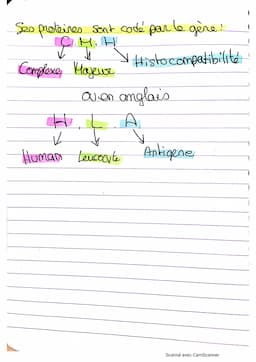 Ses protéines sont codé par le gène :
C. M. H
Complexe Majeur Histocompatibilité
ou en anglais
H. L. A
Human Leucocyte Antigène
Scanné avec CamScanner